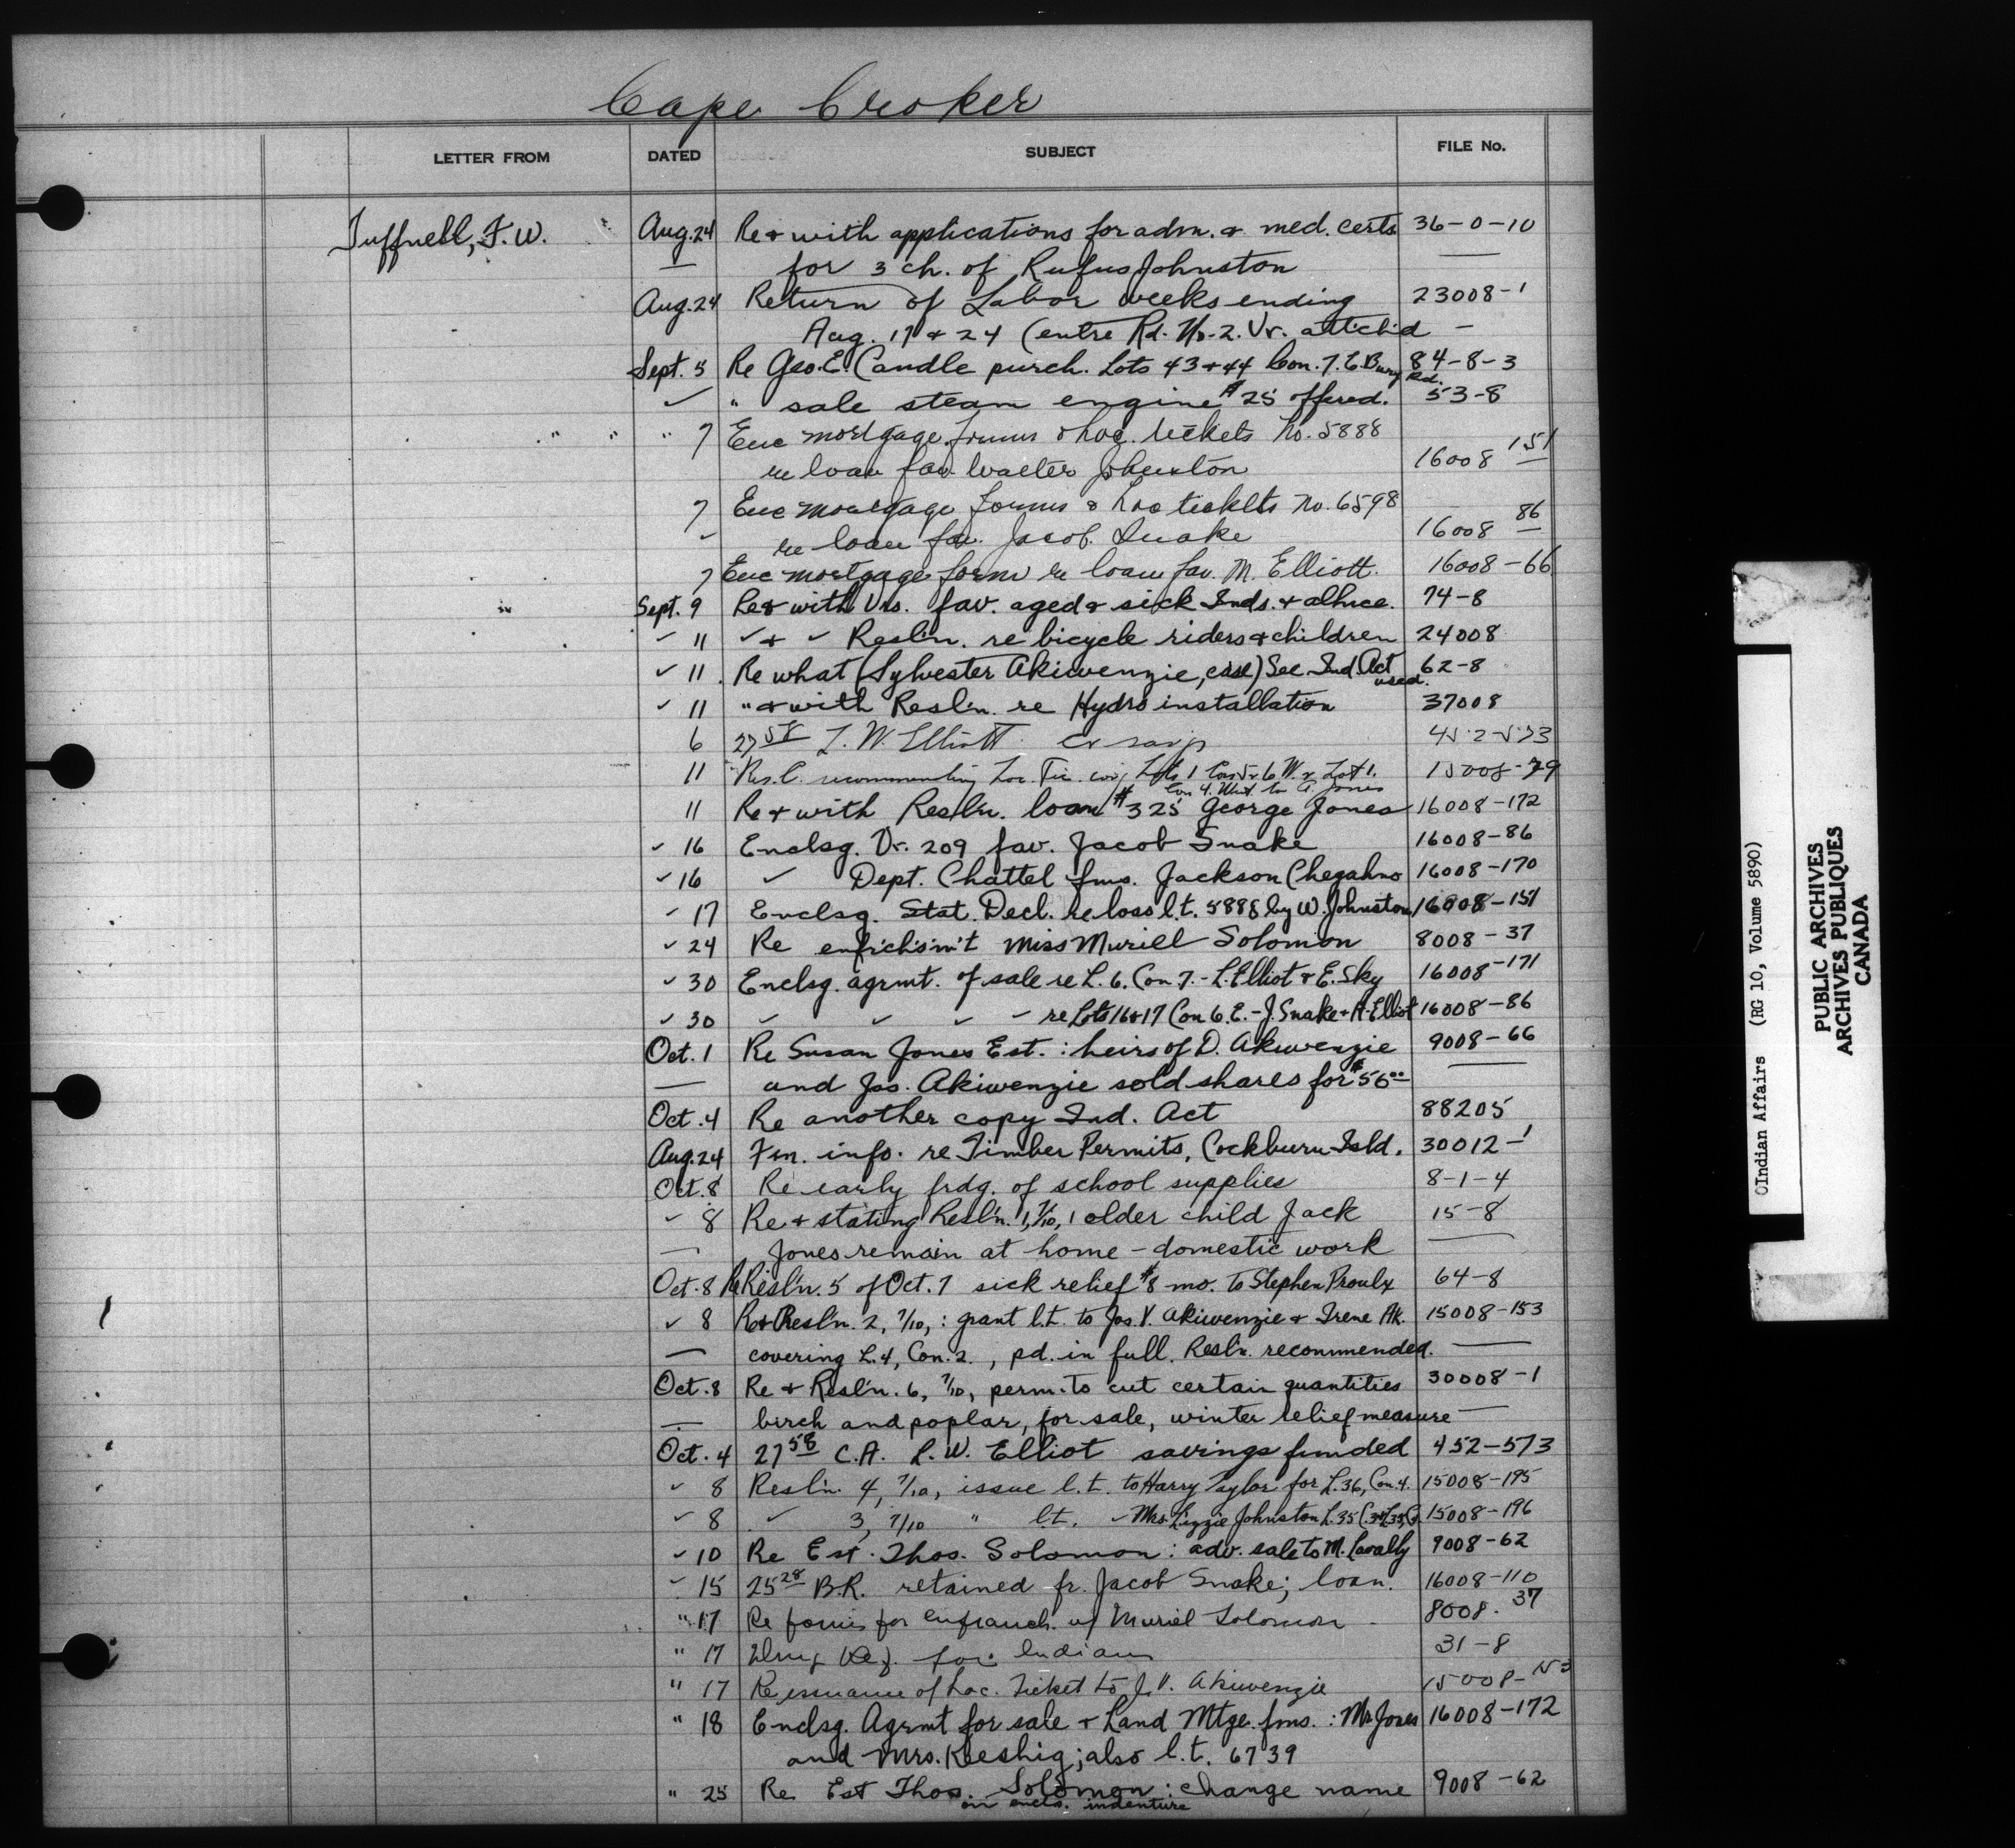 Cape Croker
LETTER FROM DATED SUBJECT FILE No.
Tuffnell, F. W. Aug. 24 Re & with applications for adm. & med. certs 36-0-10
— for 3 ch. of Rufus Johnston —
Aug. 24 Return of Labor weeks ending 23008-1
Aug. 17 & 24 (entre Rd. No. 2. Vr. attch'd —
Sept. 5 Re Geo. E. Candle purch. Lots 43 & 44 Con. 7. E. Bury Rd. 84-8-3
✓ " sale steam engine $25 offered. 53-8
" 7 Enc mortgage forms & Loc. tickets No. 5888
re loan fav. Walter Johnston 16008 151
7 Enc mortgage forms & Loc tickets No. 6598
✓ re loan fav. Jacob Snake 16008 86
7 Enc mortgage form re loan fav. M. Elliott. 16008-66
Sept. 9 Re & with Vrs. fav. aged & sick Inds. & allnce. 74-8
✓ 11 ✓ & ✓ Resl'n. re bicycle riders & children 24008
✓ 11 Re what (Sylvester Akiwenzie, case) Sec. Ind. Act used. 62-8
✓ 11 " & with Resl'n. re Hydro installation 37008
6 27 58 L. W. Elliott 452-573
11 Res. C. recommending Loc. Tic. Lots 1 Con 5 & 6 W. & Lot 1. 15008-79
Con 4. West to A. Jones
11 Re & with Resl'n. loan $325 George Jones 16008-172
✓ 16 Enclsg. Vr. 209 fav. Jacob Snake 16008-86
✓ 16 ✓ Dept. Chattel fms. Jackson Chegahno 16008-170
✓ 17 Enclsg. Stat. Decl. re loss l.t. 5888 by W. Johnston 16008-151
✓ 24 Re enfrchism't Miss Muriel Solomon 8008-37
✓ 30 Enclsg. agrmt. of sale re L. 6. Con. 7. - L. Elliot & E. Sky 16008-171
✓ 30 ✓ ✓ ✓ ✓ re Lots 16 & 17 Con 6. E. - J. Snake & A. Elliot 16008-86
Oct. 1 Re Susan Jones Est. : heirs of D. Akiwenzie 9008-66
— and Jas. Akiwenzie sold shares for $56.00 —
Oct. 4 Re another copy Ind. Act 88205
Aug. 24 Frn. info. re Timber Permits, Cockburn Isld. 30012-1
Oct. 8 Re early frdg. of school supplies 8-1-4
✓ 8 Re & stating Resl'n. 1, 7/10, 1 older child Jack 15-8
— Jones remain at home - domestic work —
Oct. 8 Re Resl'n. 5 of Oct. 7 sick relief $8 mo. to Stephen Proulx 64-8
✓ 8 Re & Resl'n. 2, 7/10, : grant l.t. to Jas. V. Akiwenzie & Irene Ak. 15008-153
— covering L. 4, Con. 2., pd. in full. Resl'n. recommended. —
Oct. 8 Re & Resl'n. 6, 7/10, perm. to cut certain quantities 30008-1
— birch and poplar, for sale, winter relief measure —
Oct. 4 27 58 C.A. L. W. Elliot savings funded 452-573
✓ 8 Resl'n. 4, 7/10, issue l.t. to Harry Taylor for L. 36, Con. 4. 15008-195
✓ 8 ✓ 3, 7/10 " l.t. ✓ Mrs. Lizzie Johnston L. 35 15008-196
✓ 10 Re Est. Thos. Solomon : adv. sale to M. Lavally 9008-62
✓ 15 25 28 B.R. retained fr. Jacob Snake; loan. 16008-110
" 17 Re forms for enfranch. of Muriel Solomon 8008. 37
" 17 Drug Req. for Indians 31-8
" 17 Re issuance of Loc. Ticket to J. V. Akiwenzie 15008-153
" 18 Enclsg. Agrmt for sale & Land Mtge. fms. : Mr Jones 16008-172
and Mrs. Keeshig; also l.t. 6739
" 25 Re Est Thos. Solomon : change name 9008-62
on encls. indenture
Indian Affairs (RG 10, Volume 5890)
PUBLIC ARCHIVES
ARCHIVES PUBLIQUES
CANADA